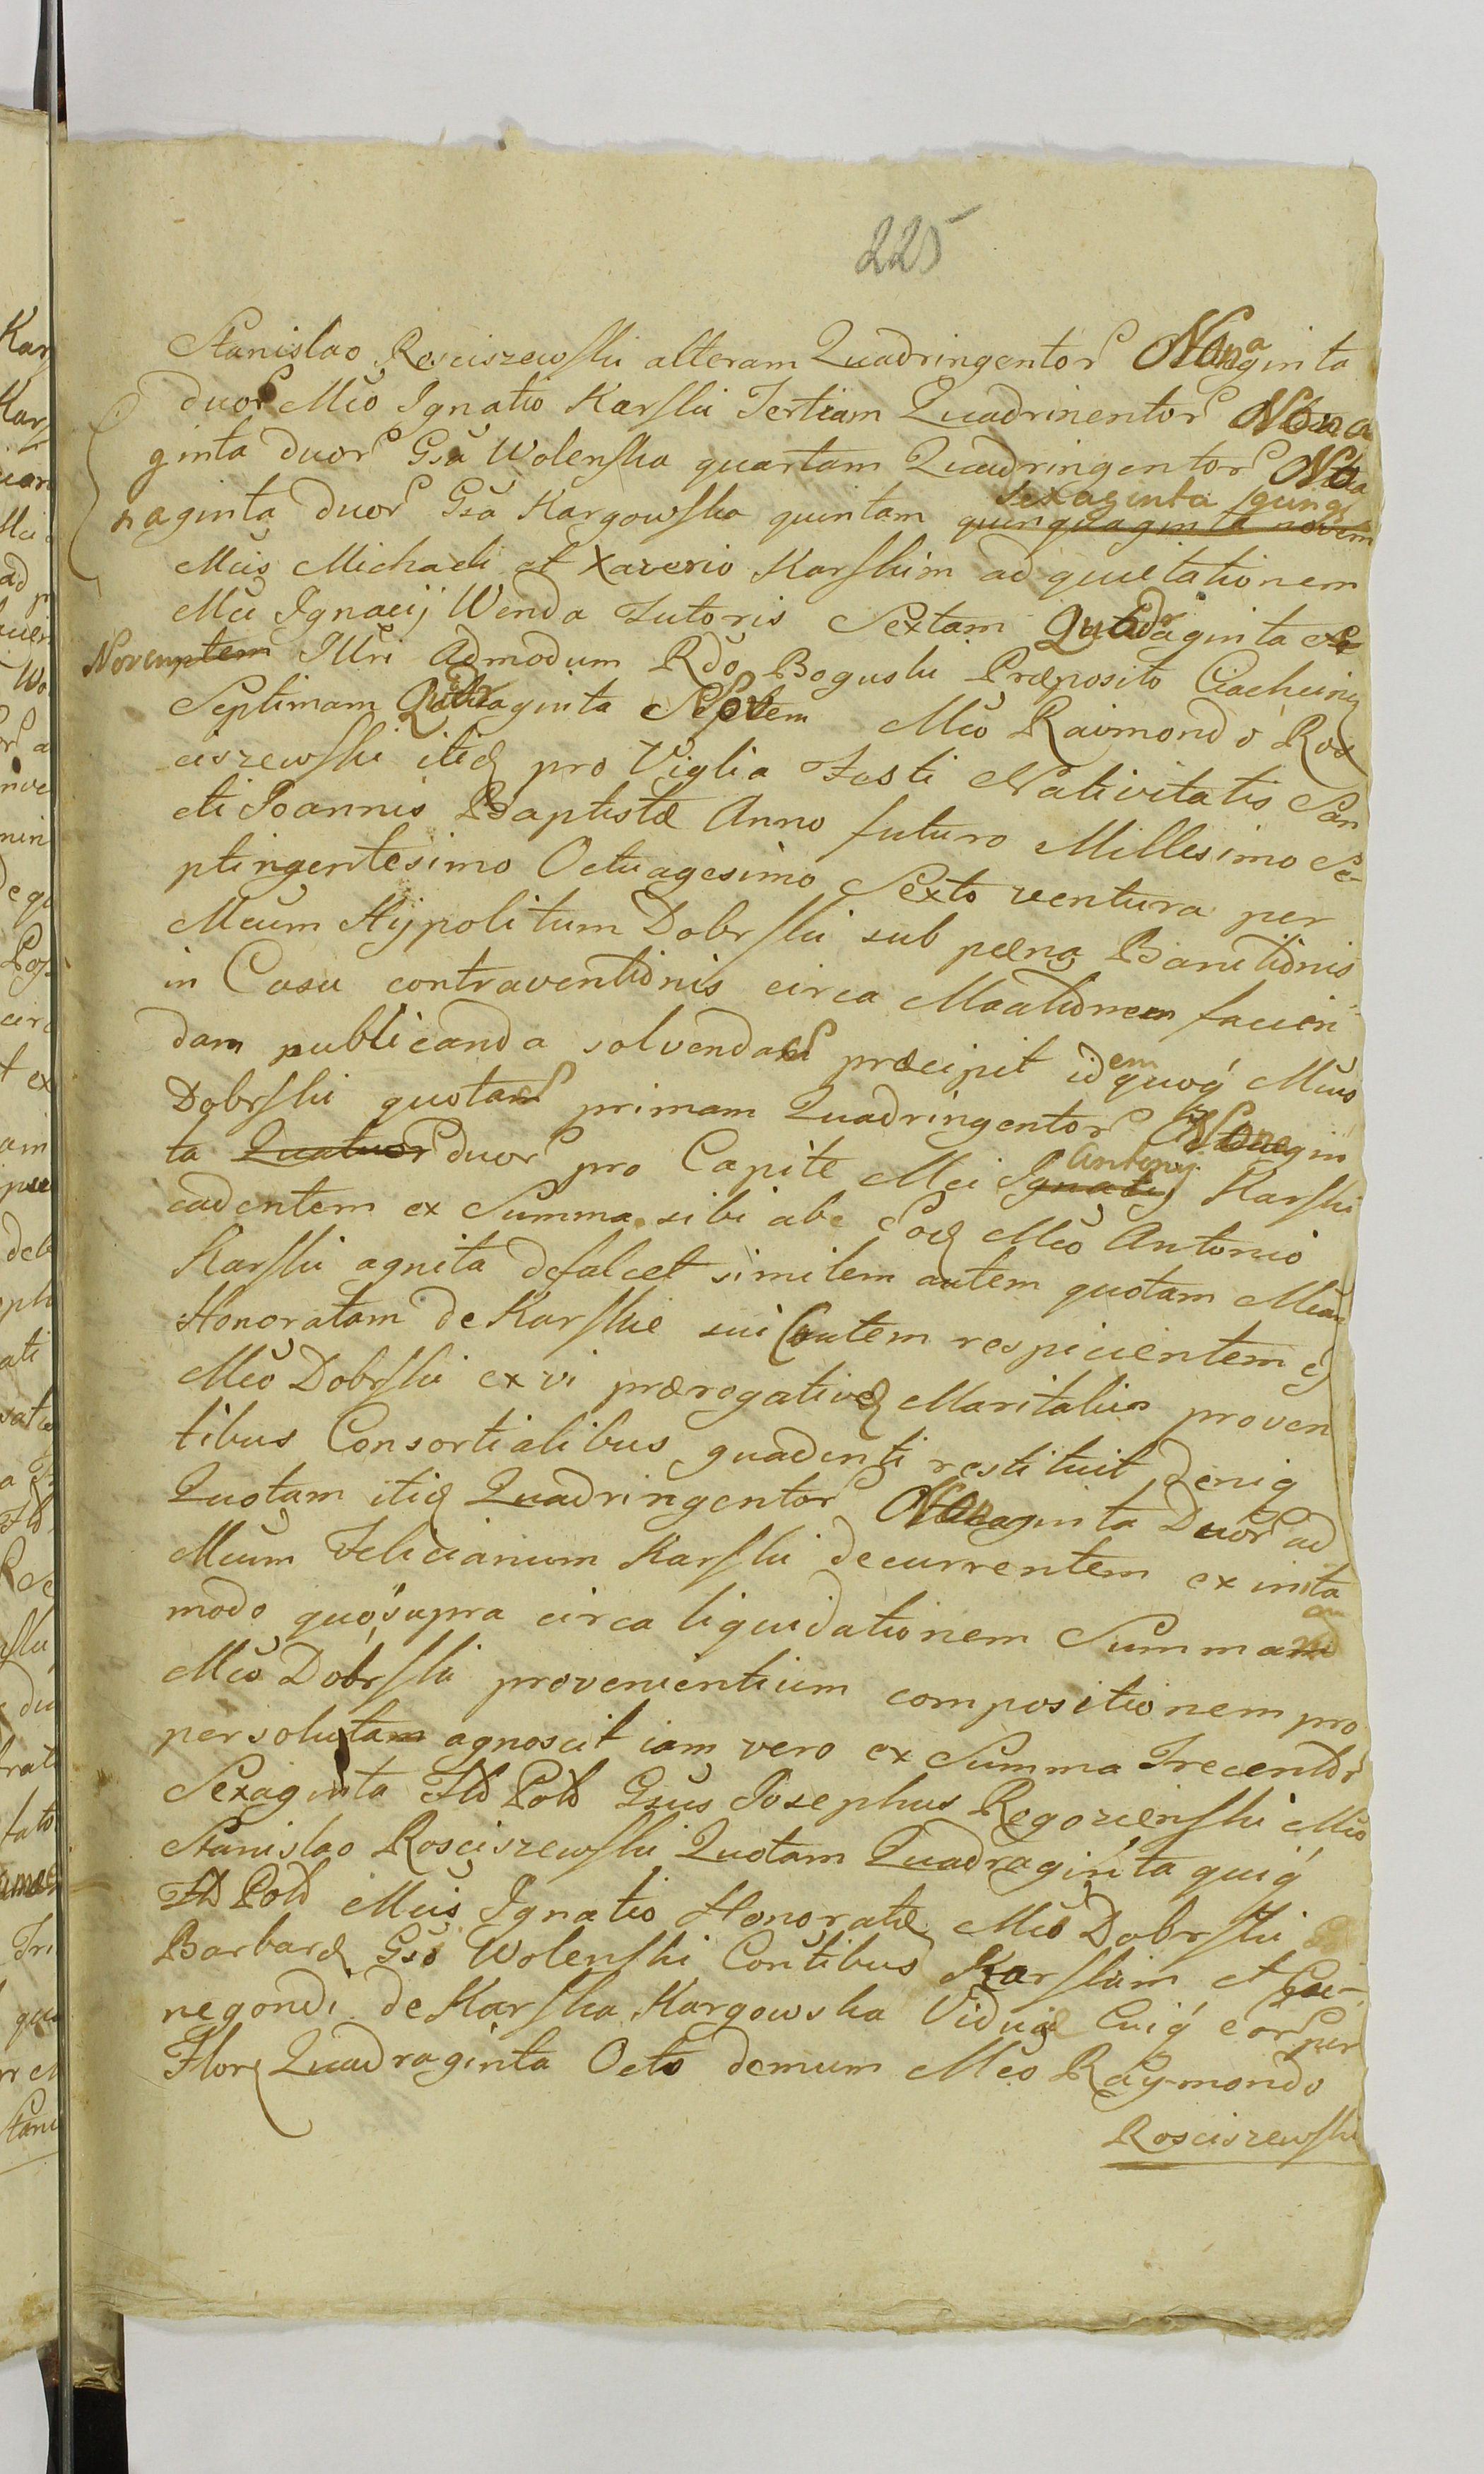 225
Stanislao Rosciszewski alteram Quadringentor Nonaginta
duor Mco Ignatio Karski Tertiam Quadrinentor Nona
ginta duor Gsa Wolenska quartam Quadringentor No
naginta duor Gsa Kargowska quintam quinquaginta novem sexaginta
Mcis Michaeli et Xaverio Karskim ad quietationem
Mci Ignacij Wenda Tutoris Sextam Quadraginta
Novem Illri Admodum Rdo Boguski Præposito
Septimam Quadraginta Mco Raimondo Ros
ciszewski itidq pro Viglia Festi Nativitatis San
cti Joannis Baptistæ Anno futuro Millesimo Se-
ptingentesimo Octuagesimo Sexto ventura per
Mcum Hypolitum Dobrski sub pæna Banitionis
in Casu contraventionis circa Maationem facien
dam publicanda solvenda præcipit idem quoq Mcus
Dobrski quotam primam Quadringentor Nonagin
ta Quatuor duor pro Capite Mci Ignatij Antony Karski
cadentem ex Summa sibi abe eodq Mco Antonio
Karski agnita defalcet similem autem quotam Mcam
Honoratam de Karskie sui Contem respicientem
Mco Dobrski ex vi prærogativæ Maritalium proven
tibus Consortialibus guadenti restituit Deniq
Quotam itidq Quadringentor Nonaginta Duor ad
Mcum Felicianum Karski decurrentem ex inita
modo quo supra circa liquidationem Summam
Mco Dobrski provenientium compositionem pro
persolutam agnoscit iam vero ex Summa Trecentor
Sexaginta Fld Pold Gsus Josephus Regozienski Mco
Stanislao Rosciszewski Quotam Quadraginta quiq
Fld Pold Mcis Ignatio Honoratæ Mco Dobrski
Barbaræ Gso Wolenski Contibus Karskim et Cu-
negondi de Karska Kargowska Viduæ Cuiq eor per
Flor Quadraginta Octo demum Mco Raymondo
Rosciszewski